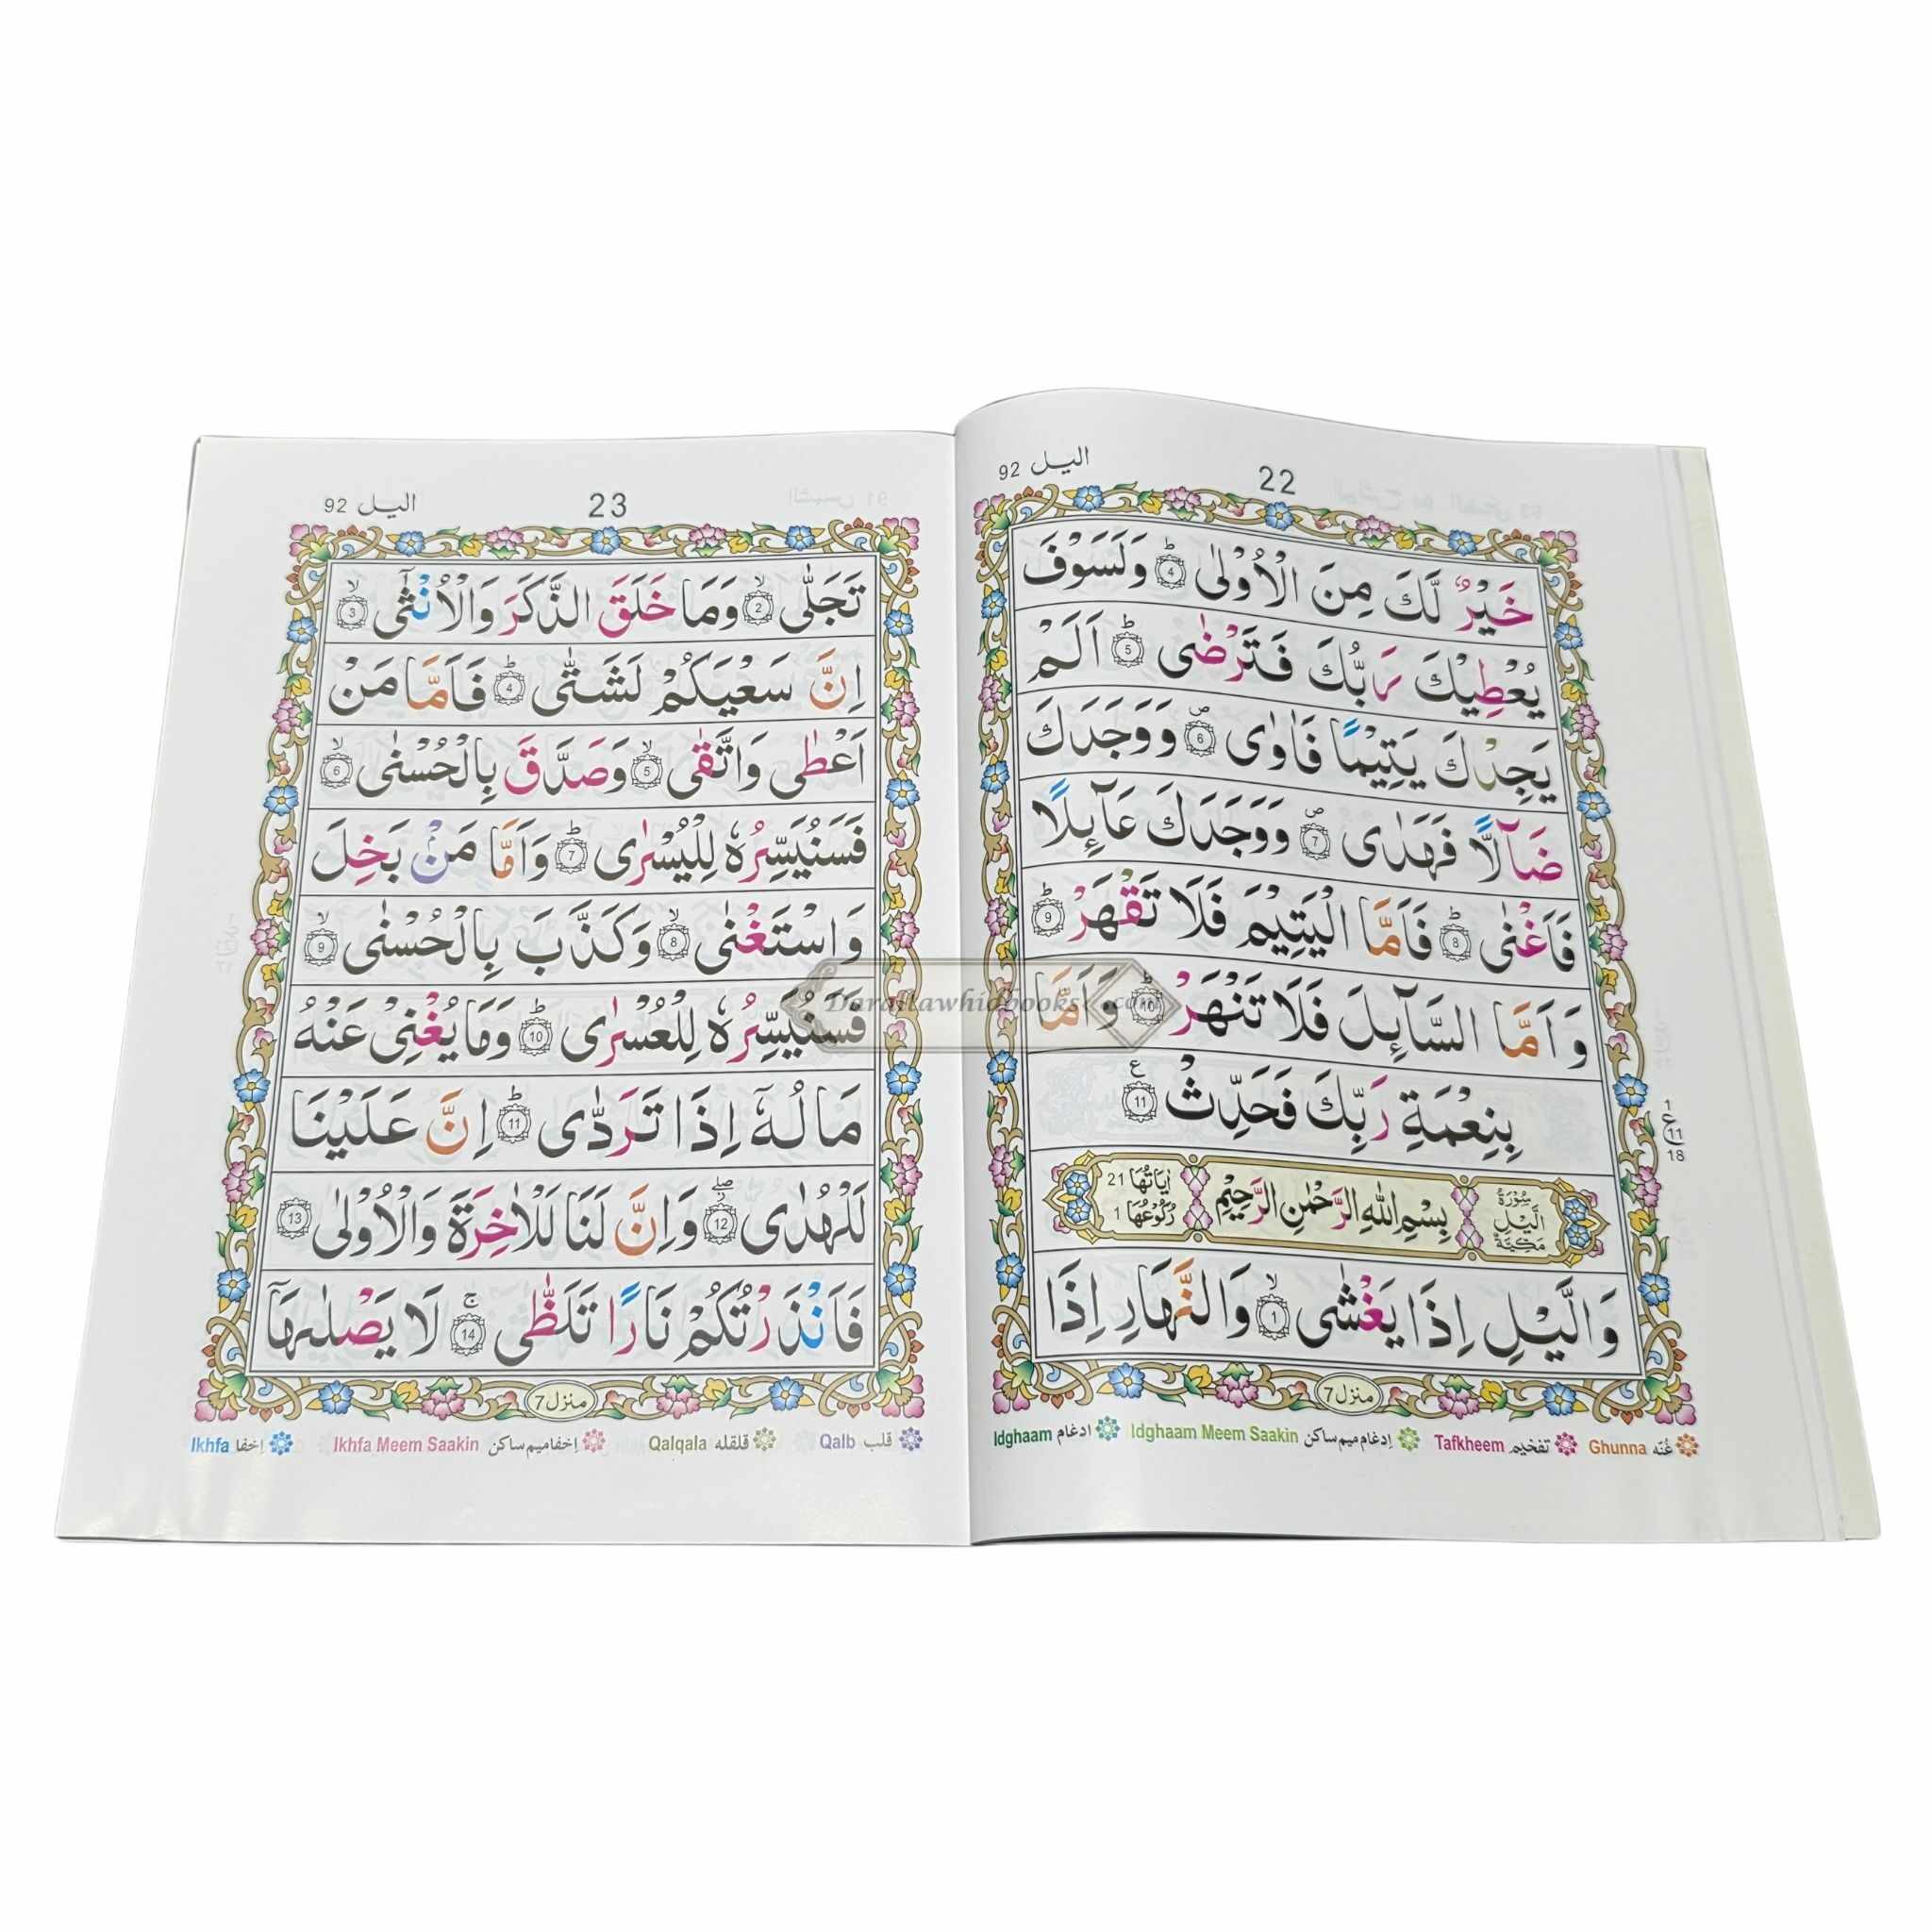 اليل 92
22
خَيْرٌ لَّكَ مِنَ الْاُوْلٰى ؕ 4 وَلَسَوْفَ
يُعْطِيْكَ رَبُّكَ فَتَرْضٰى ؕ 5 اَلَمْ
يَجِدْكَ يَتِيْمًا فَاٰوٰى ۪ 6 وَوَجَدَكَ
ضَآلًّا فَهَدٰى ۪ 7 وَوَجَدَكَ عَآئِلًا
فَاَغْنٰى ؕ 8 فَاَمَّا الْيَتِيْمَ فَلَا تَقْهَرْ ؕ 9
وَاَمَّا السَّآئِلَ فَلَا تَنْهَرْ ؕ 10 وَاَمَّا
بِنِعْمَةِ رَبِّكَ فَحَدِّثْ 11 ع
1
ع 11
18
سُوْرَةُ الَّيْلِ مَكِّيَّةٌ
بِسْمِ اللهِ الرَّحْمٰنِ الرَّحِيْمِ
اٰيَاتُهَا 21
رُكُوْعُهَا 1
وَالَّيْلِ اِذَا يَغْشٰى ۙ 1 وَالنَّهَارِ اِذَا
منزل 7
غُنّه Ghunna
تفخيم Tafkheem
اِدغام ميم ساكن Idghaam Meem Saakin
ادغام Idghaam
اليل 92
23
تَجَلّٰى ۙ 2 وَمَا خَلَقَ الذَّكَرَ وَالْاُنْثٰٓى ۙ 3
اِنَّ سَعْيَكُمْ لَشَتّٰى ؕ 4 فَاَمَّا مَنْ
اَعْطٰى وَاتَّقٰى ۙ 5 وَصَدَّقَ بِالْحُسْنٰى ۙ 6
فَسَنُيَسِّرُهٗ لِلْيُسْرٰى ؕ 7 وَاَمَّا مَنْۢ بَخِلَ
وَاسْتَغْنٰى ۙ 8 وَكَذَّبَ بِالْحُسْنٰى ۙ 9
فَسَنُيَسِّرُهٗ لِلْعُسْرٰى ؕ 10 وَمَا يُغْنِيْ عَنْهُ
مَالُهٗٓ اِذَا تَرَدّٰى ؕ 11 اِنَّ عَلَيْنَا
لَلْهُدٰى ۖ 12 وَاِنَّ لَنَا لَلْاٰخِرَةَ وَالْاُوْلٰى 13
فَاَنْذَرْتُكُمْ نَارًا تَلَظّٰى ۚ 14 لَا يَصْلٰىهَآ
منزل 7
قلب Qalb
قلقله Qalqala
اِخفا ميم ساكن Ikhfa Meem Saakin
اِخفا Ikhfa
Darattawhidbooks.com